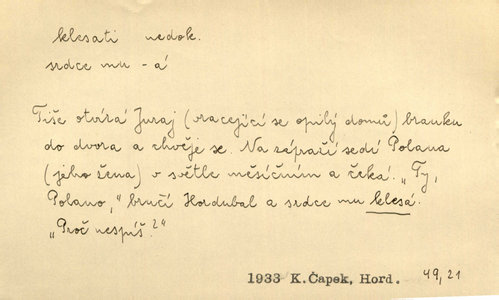 klesati nedok.
srdce mu -á
Tiše otvírá Juraj (vracející se opilý domů) branku
do dvora a chvěje se. Na zápraží sedí Polana
(jeho žena) v světle měsíčním a čeká. „Ty,
Polano,“ bručí Hordubal a srdce mu klesá.
„Proč nespíš?“
1933 K.Čapek, Hord. 49,21